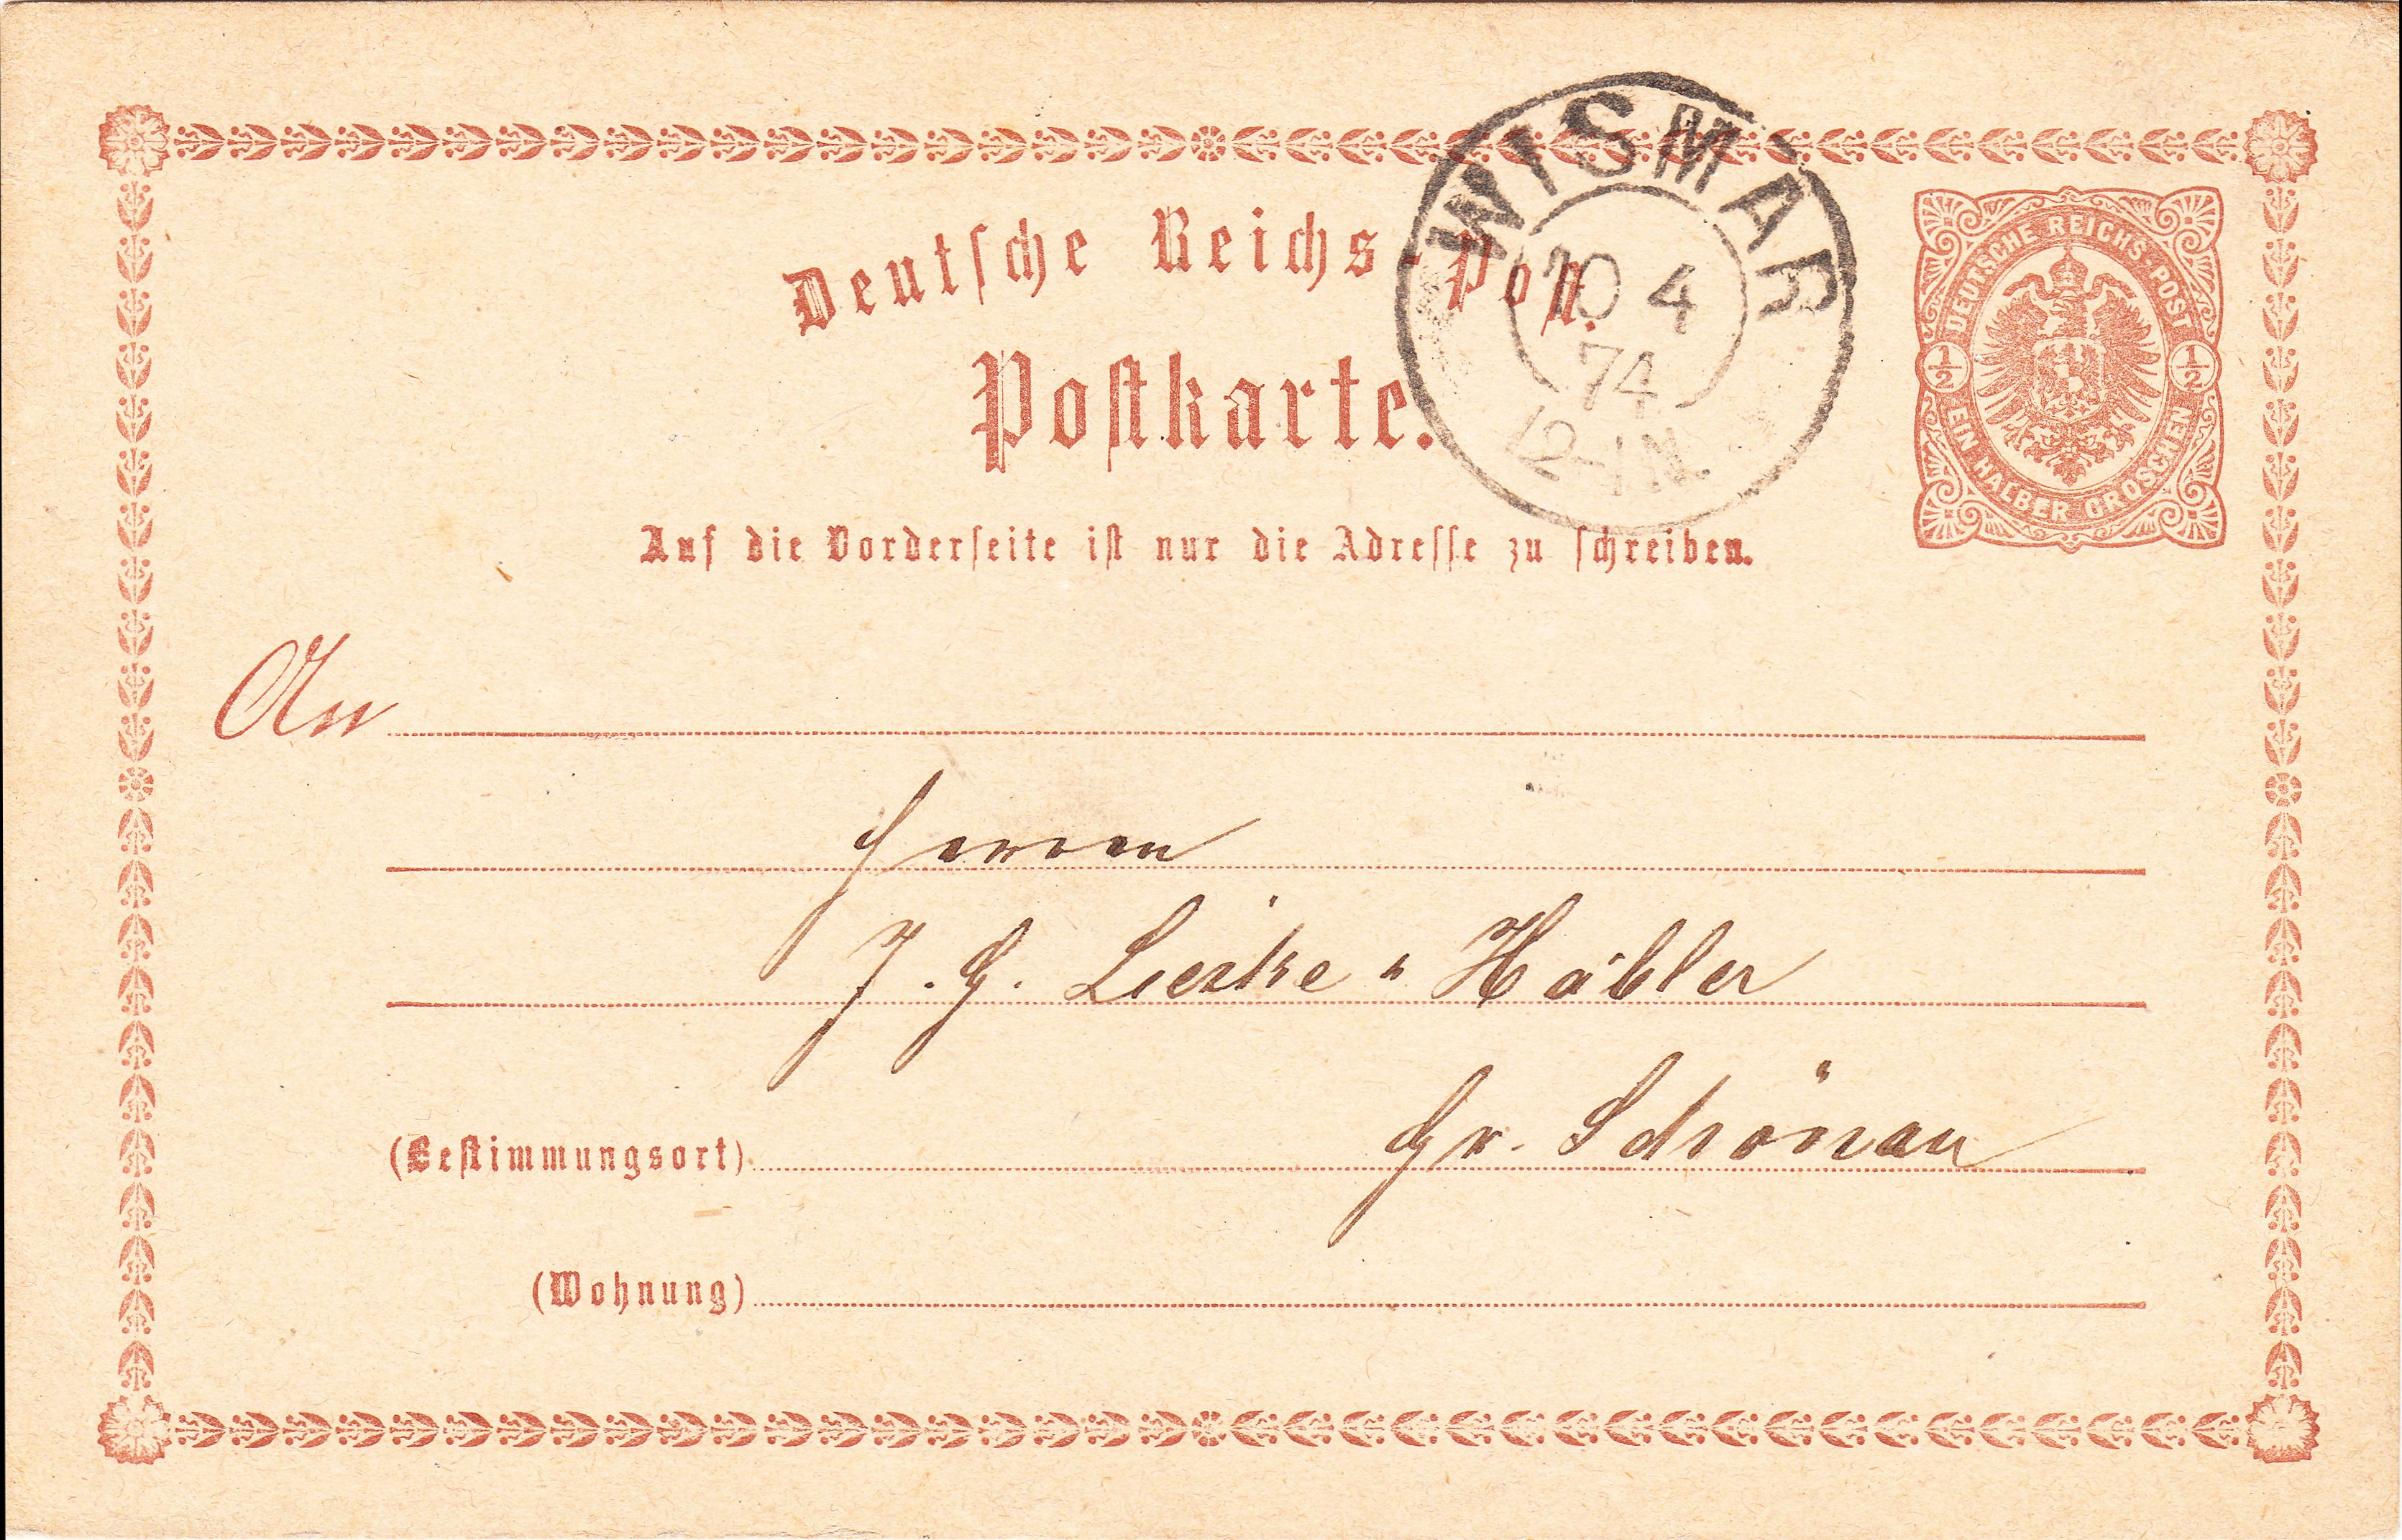 Deutsche Reichs-Post.
Postkarte.
WISMAR
10 4
74
12-1N.
DEUTSCHE REICHS-POST
1/2 1/2
EIN HALBER GROSCHEN
Auf die Vorderseite ist nur die Adresse zu schreiben.
An
Herren
J. G. Lieske & Häbler
(Bestimmungsort) Gr. Schönau
(Wohnung)